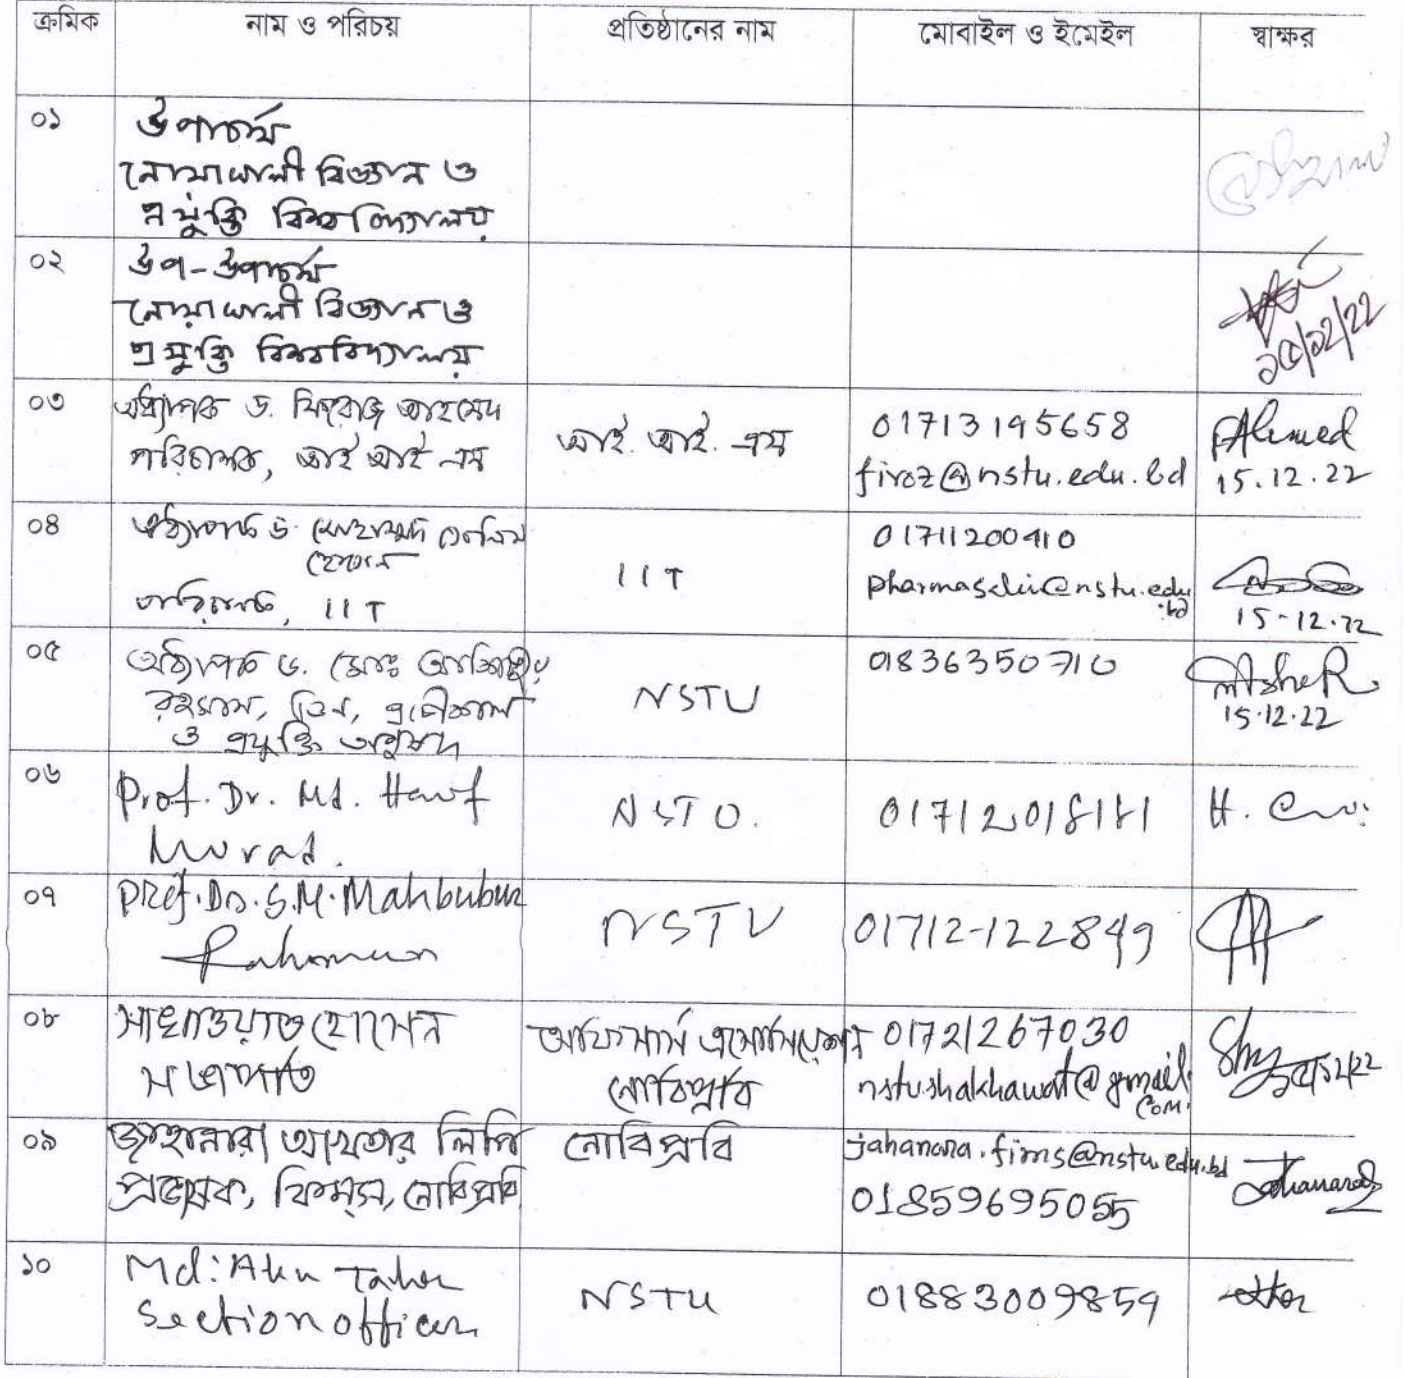 ক্রমিক নাম ও পরিচয় প্রতিষ্ঠানের নাম মোবাইল ও ইমেইল স্বাক্ষর
০১ উপাচার্য
নোয়াখালী বিজ্ঞান ও
প্রযুক্তি বিশ্ববিদ্যালয়
০২ উপ-উপাচার্য
নোয়াখালী বিজ্ঞান ও
প্রযুক্তি বিশ্ববিদ্যালয়
১৫/১২/২২
০৩ অধ্যাপক ড. ফিরোজ আহমেদ
পরিচালক, আই আই এস
আই. আই. এস
01713195658
firoz@nstu.edu.bd
FAhmed
15.12.22
০৪ অধ্যাপক ড. মোহাম্মদ সেলিম
হোসেন
পরিচালক, IIT
IIT
01711200410
pharmaselim@nstu.edu
.bd
15-12.22
০৫ অধ্যাপক ড. মোঃ আশিকুর
রহমান, ডিন, প্রকৌশল
ও প্রযুক্তি অনুষদ
NSTU
01836350710
15.12.22
০৬ Prof. Dr. Md. Hanif
Murad.
NSTU.
01712018181
০৭ Prof. Dr. S.M. Mahbubur
Rahaman
NSTU
01712-122849
০৮ সাখাওয়াত হোসেন
সভাপতি
অফিসার্স এসোসিয়েশন
নোবিপ্রবি
01721267030
nstushakhawat@gmail.
com.
১৫/১২/২২
০৯ জাহানারা আখতার লিপি
প্রভাষক, ফিমস, নোবিপ্রবি
নোবিপ্রবি
jahanara.fims@nstu.edu.bd
01859695055
Jahanara
১০ Md: Abu Taher
Section officer
NSTU
01883009859